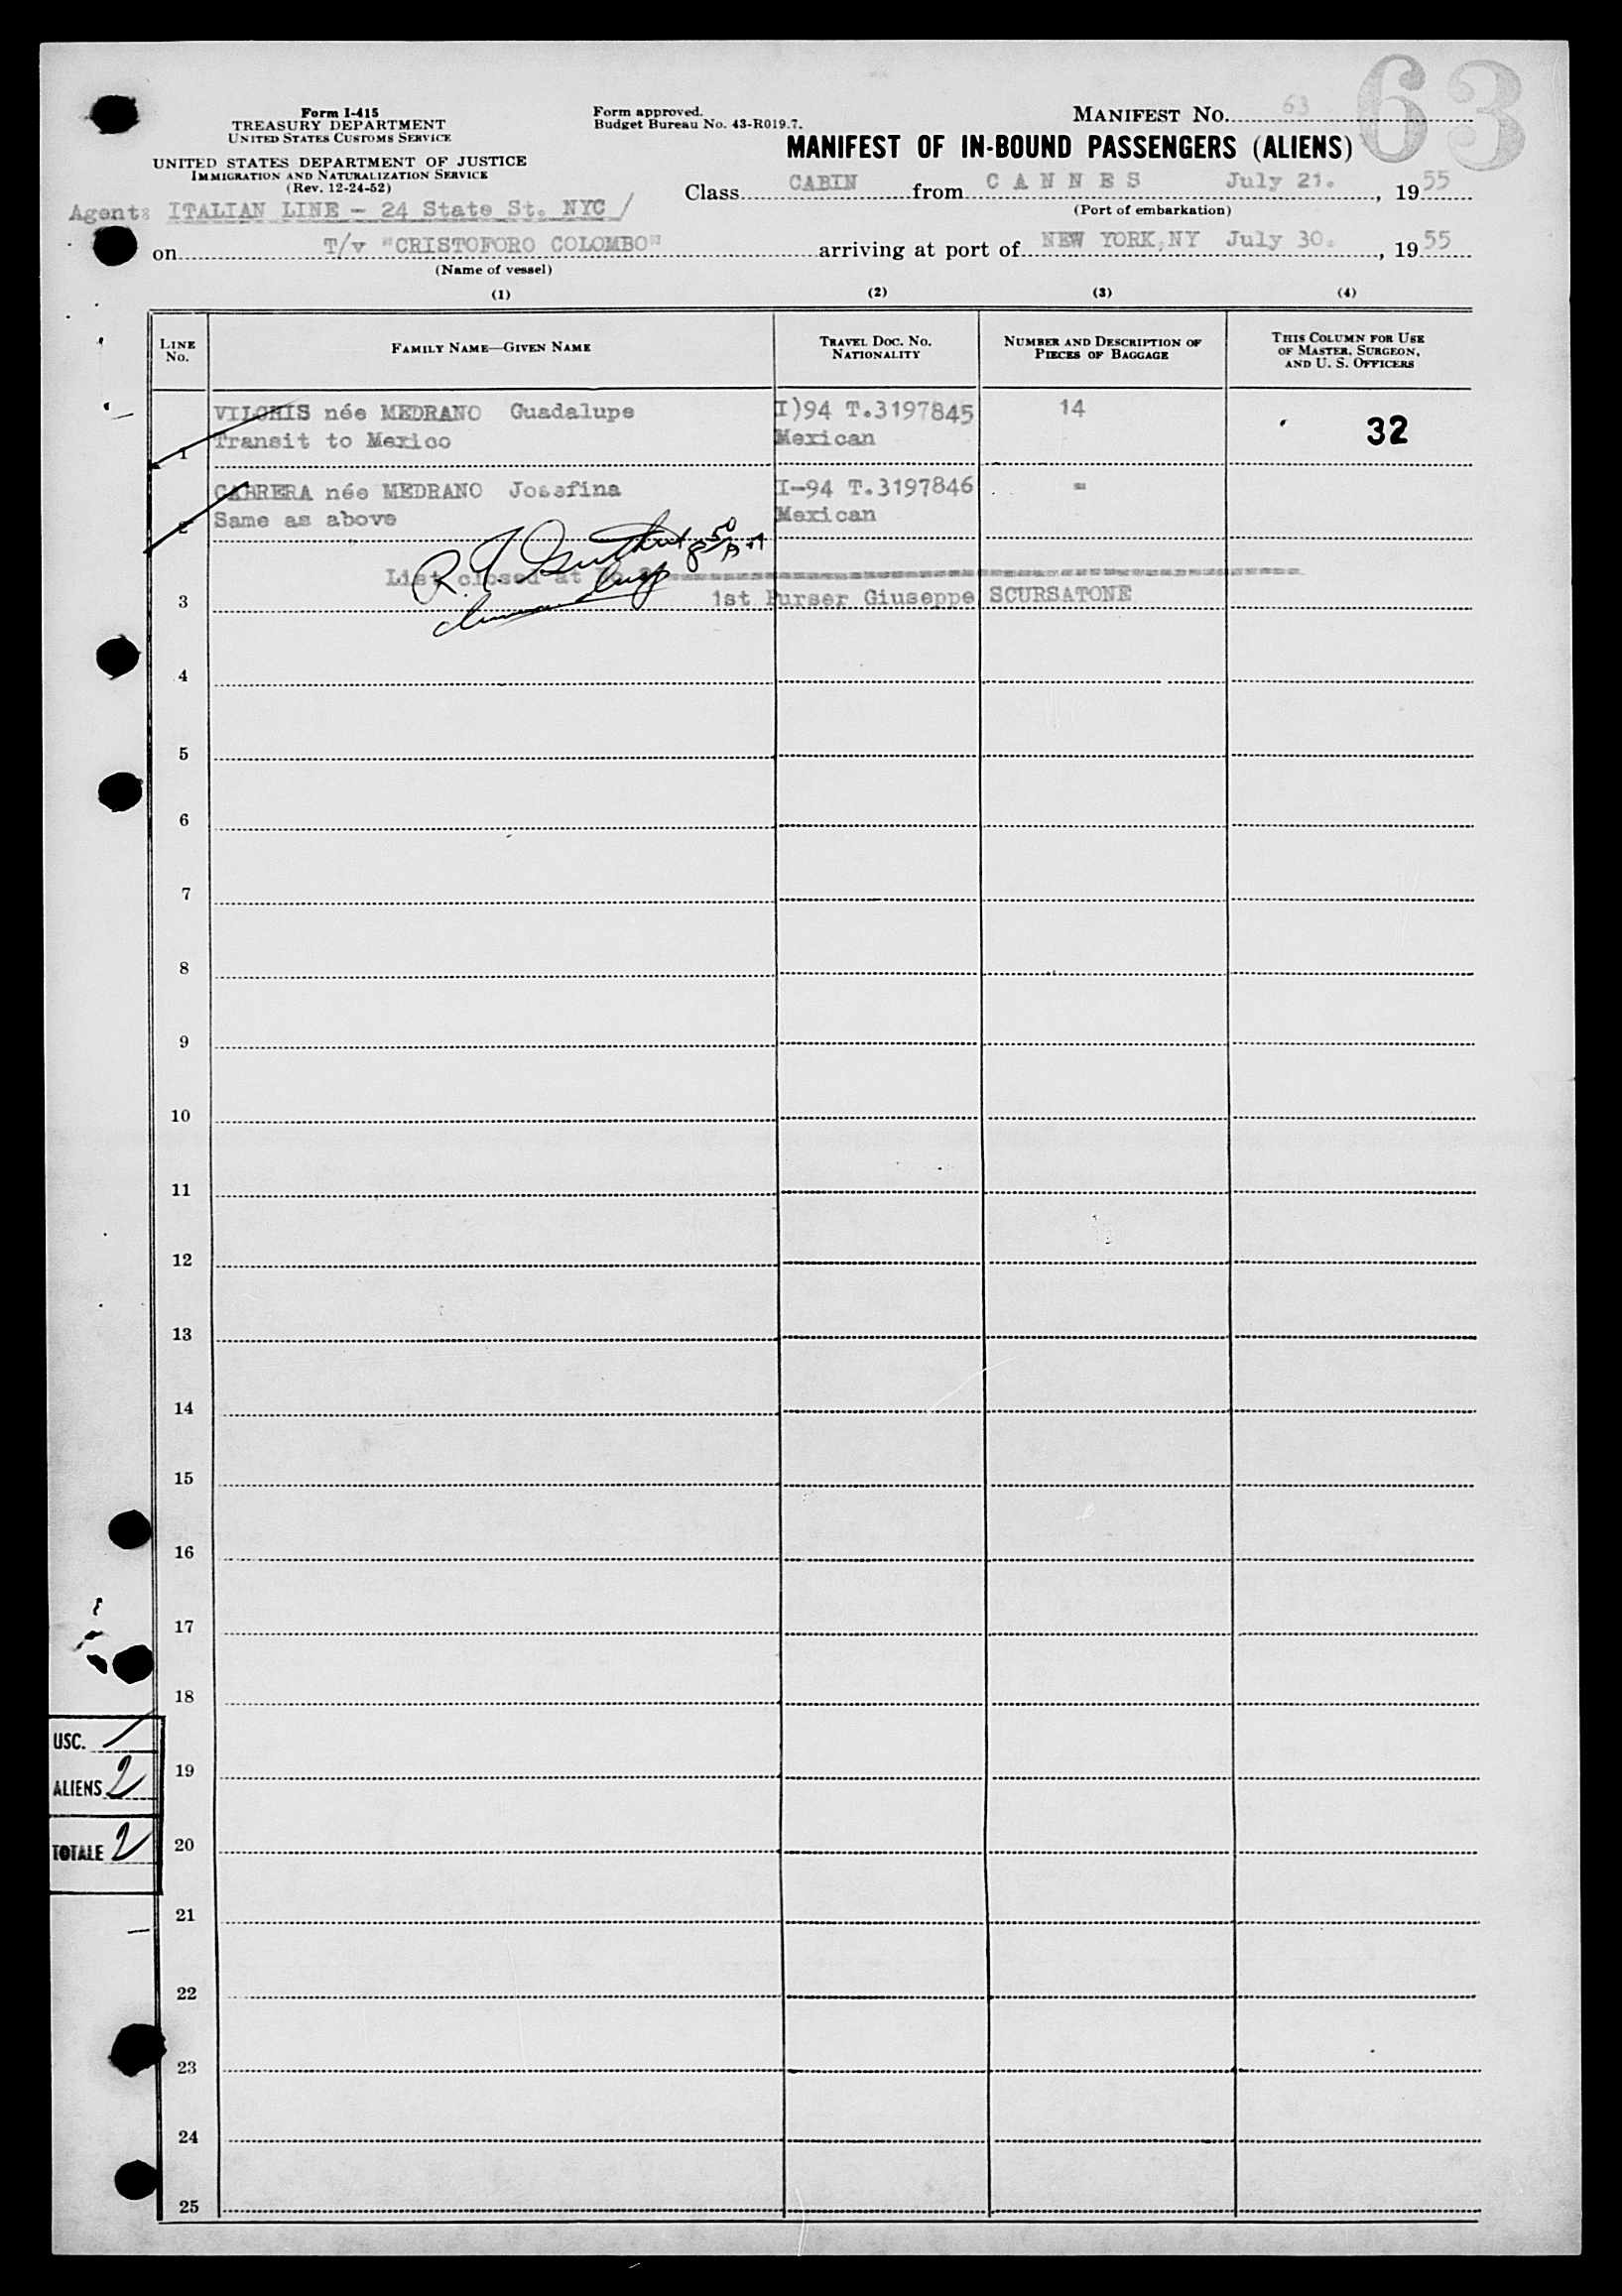 63
Form I-415
TREASURY DEPARTMENT
UNITED STATES CUSTOMS SERVICE
UNITED STATES DEPARTMENT OF JUSTICE
IMMIGRATION AND NATURALIZATION SERVICE
(Rev. 12-24-52)
Form approved.
Budget Bureau No. 43-R019.7.
MANIFEST NO. 63
MANIFEST OF IN-BOUND PASSENGERS (ALIENS)
Class CABIN from CANNES July 21. , 1955
(Port of embarkation)
Agent: ITALIAN LINE - 24 State St. NYC /
on T/v "CRISTOFORO COLOMBO" arriving at port of NEW YORK,NY July 30. , 1955
(Name of vessel)
(1) (2) (3) (4)
LINE No. FAMILY NAME—GIVEN NAME TRAVEL DOC. NO. NATIONALITY NUMBER AND DESCRIPTION OF PIECES OF BAGGAGE THIS COLUMN FOR USE OF MASTER, SURGEON, AND U. S. OFFICERS
VILCHIS née MEDRANO Guadalupe I)94 T.3197845 14
1 Transit to Mexico Mexican 32
CABRERA née MEDRANO Josefina I-94 T.3197846 =
2 Same as above Mexican
List closed at
3 1st Purser Giuseppe SCURSATONE
4
5
6
7
8
9
10
11
12
13
14
15
16
17
18
USC.
19
ALIENS 2
20
TOTALE 2
21
22
23
24
25